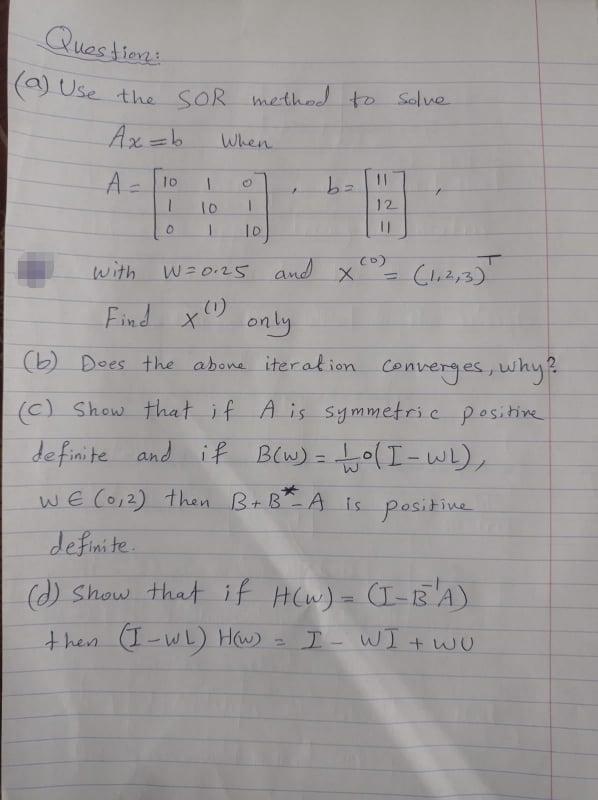 Question:
(a) Use the SOR method to solve
Ax=b when
A = [10 1 0; 1 10 1; 0 1 10], b = [11; 12; 11],
with W=0.25 and x^(0) = (1,2,3)^T
Find x^(1) only
(b) Does the above iteration converges, why?
(c) Show that if A is symmetric positive
definite and if B(w) = 1/w D(I-WL),
W ∈ (0,2) then B+B*-A is positive
definite.
(d) Show that if H(w) = (I-B^-1 A)
then (I-WL) H(w) = I - WI + WU